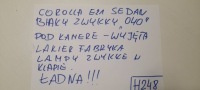 COROLLA E21 SEDAN
BIAŁY ZWYKŁY "040"
POD KAMERE - WYJĘTA
LAKIER FABRYKA
LAMPY ZWYKŁE W
KLAPIE.
ŁADNA!!!
H248